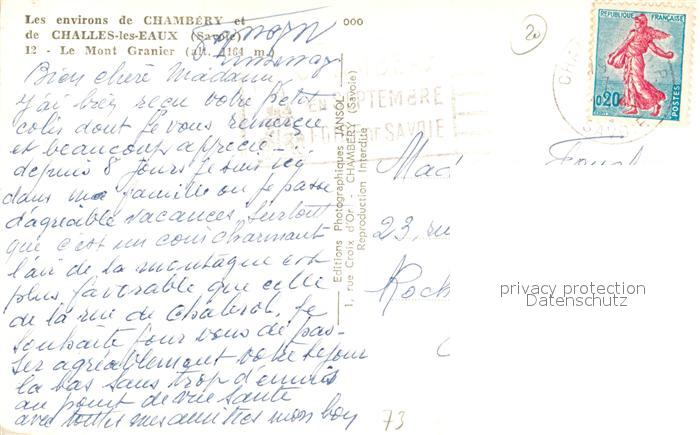 Les environs de CHAMBÉRY et
de CHALLES-les-EAUX (Savoie)
12 - Le Mont Granier (alt. 1164 m.)
000
20
Bien chère Madame
j'ai bien reçu votre petit
colis dont je vous remercie
et beaucoup apprécié -
depuis 8 jours je suis ici
dans ma famille où je passe
d'agréable vacances. Surtout
que c'est un coin charmant
l'air de la montagne est
plus favorable que celle
de la rue de Chabrol. Je
souhaite pour vous de pas-
ser agréablement votre séjour
la bas sans trop d'ennuis
au point de vue santé
avec toutes mes amitiés mon bon
Editions Photographiques JANSOL
1, rue Croix d'Or - CHAMBÉRY (Savoie)
Reproduction Interdite
EN SEPTEMBRE
SAVOIE
REPUBLIQUE FRANÇAISE
0,20
POSTES
Mad
23, ru
Roch
privacy protection
Datenschutz
73